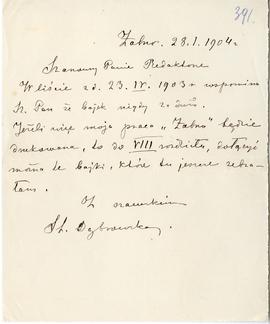 391.
Żabno. 28.I.1904 r.
Szanowny Panie Redaktorze
W liście z d. 23. IV. 1903 r wspomina
Sz. Pan że bajek nigdy za dużo.
Jeżeli więc moja praca „Żabno" będzie
drukowana, to do VIII rozdziału, dołączyć
można te bajki, które tu jeszcze zebra-
łam.
Z szacunkiem
St. Dąbrowska